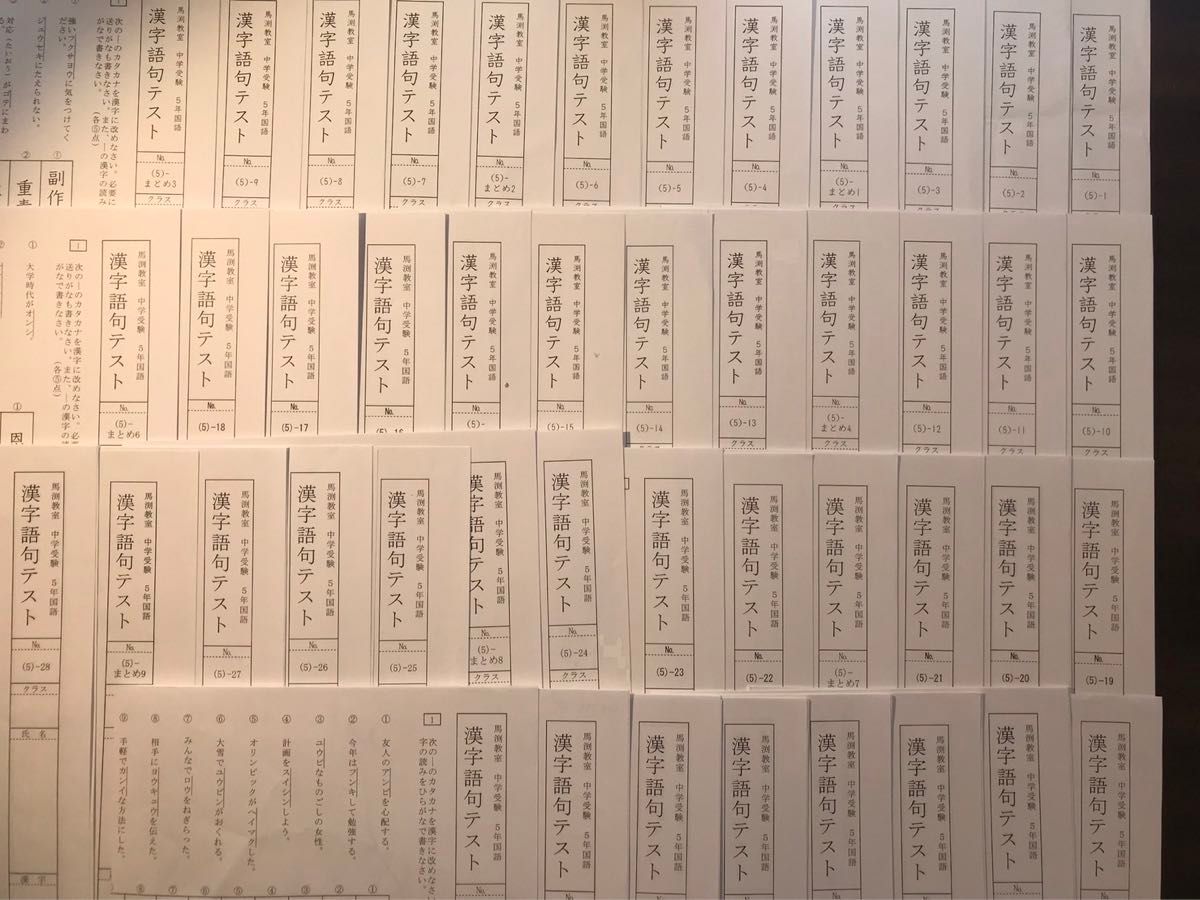 馬渕教室 中学受験 5年国語
漢字語句テスト
No.
(5)-1
馬渕教室 中学受験 5年国語
漢字語句テスト
No.
(5)-2
クラス
馬渕教室 中学受験 5年国語
漢字語句テスト
No.
(5)-3
クラス
馬渕教室 中学受験 5年国語
漢字語句テスト
No.
(5)-
まとめ1
クラス
馬渕教室 中学受験 5年国語
漢字語句テスト
No.
(5)-4
クラス
馬渕教室 中学受験 5年国語
漢字語句テスト
No.
(5)-5
クラス
馬渕教室 中学受験 5年国語
漢字語句テスト
No.
(5)-6
クラス
馬渕教室 中学受験 5年国語
漢字語句テスト
No.
(5)-
まとめ2
クラス
馬渕教室 中学受験 5年国語
漢字語句テスト
No.
(5)-7
クラス
馬渕教室 中学受験 5年国語
漢字語句テスト
No.
(5)-8
クラス
馬渕教室 中学受験 5年国語
漢字語句テスト
No.
(5)-9
クラス
馬渕教室 中学受験 5年国語
漢字語句テスト
No.
(5)-
まとめ3
クラス
1
次の―のカタカナを漢字に改めなさい。必要に
送りがなも書きなさい。また、―の漢字の読み
がなで書きなさい。 (各⑤点)
①
強いフクサヨウに気をつけてく
ださい。
②
ジュウセキにたえられない。
対応(たいおう)がゴテにまわ
る。
①
副作
②
重責
馬渕教室 中学受験 5年国語
漢字語句テスト
No.
(5)-10
クラス
馬渕教室 中学受験 5年国語
漢字語句テスト
No.
(5)-11
クラス
馬渕教室 中学受験 5年国語
漢字語句テスト
No.
(5)-12
クラス
馬渕教室 中学受験 5年国語
漢字語句テスト
No.
(5)-
まとめ4
クラス
馬渕教室 中学受験 5年国語
漢字語句テスト
No.
(5)-13
クラス
馬渕教室 中学受験 5年国語
漢字語句テスト
No.
(5)-14
馬渕教室 中学受験 5年国語
漢字語句テスト
No.
(5)-15
馬渕教室 中学受験 5年国語
漢字語句テスト
No.
(5)-
馬渕教室 中学受験 5年国語
漢字語句テスト
No.
(5)-16
馬渕教室 中学受験 5年国語
漢字語句テスト
No.
(5)-17
馬渕教室 中学受験 5年国語
漢字語句テスト
No.
(5)-18
馬渕教室 中学受験 5年国語
漢字語句テスト
No.
(5)-
まとめ6
1
次の―のカタカナを漢字に改めなさい。必要に
送りがなも書きなさい。また、―の漢字の
がなで書きなさい。 (各⑤点)
①
大学時代がオンシ
②
①
馬渕教室 中学受験 5年国語
漢字語句テスト
No.
(5)-19
馬渕教室 中学受験 5年国語
漢字語句テスト
No.
(5)-20
馬渕教室 中学受験 5年国語
漢字語句テスト
No.
(5)-21
馬渕教室 中学受験 5年国語
漢字語句テスト
No.
(5)-
まとめ7
馬渕教室 中学受験 5年国語
漢字語句テスト
No.
(5)-22
馬渕教室 中学受験 5年国語
漢字語句テスト
No.
(5)-23
馬渕教室 中学受験 5年国語
漢字語句テスト
No.
(5)-24
クラス
馬渕教室 中学受験 5年国語
漢字語句テスト
No.
(5)-
まとめ8
クラス
馬渕教室 中学受験 5年国語
漢字語句テスト
No.
(5)-25
馬渕教室 中学受験 5年国語
漢字語句テスト
No.
(5)-26
馬渕教室 中学受験 5年国語
漢字語句テスト
No.
(5)-27
馬渕教室 中学受験 5年国語
漢字語句テスト
No.
(5)-
まとめ9
馬渕教室 中学受験 5年国語
漢字語句テスト
No.
(5)-28
クラス
氏名
漢字
馬渕教室 中学受験 5年国語
漢字語句テスト
馬渕教室 中学受験 5年国語
漢字語句テスト
馬渕教室 中学受験 5年国語
漢字語句テスト
馬渕教室 中学受験 5年国語
漢字語句テスト
馬渕教室 中学受験 5年国語
漢字語句テスト
馬渕教室 中学受験 5年国語
漢字語句テスト
馬渕教室 中学受験 5年国語
漢字語句テスト
馬渕教室 中学受験 5年国語
漢字語句テスト
No.
1
次の―のカタカナを漢字に改めなさ
字の読みをひらがなで書きなさい。
①
友人のアンピを心配する。
②
今年はフンキして勉強する。
③
ユウビなものごしの女性。
④
計画をスイシンしよう。
⑤
オリンピックがヘイマクした。
⑥
大雪でユウビンがおくれる。
⑦
みんなでロウをねぎらった。
⑧
相手にヨウキュウを伝えた。
⑨
手軽でカンイな方法にした。
①
②
③
④
⑤
⑥
⑦
⑧